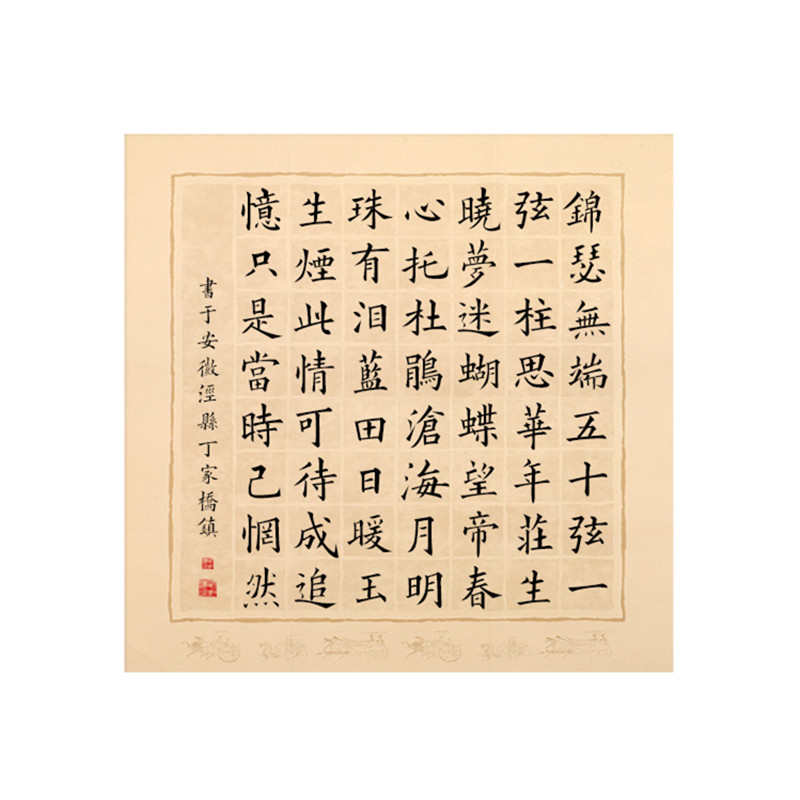 錦瑟無端五十弦一
弦一柱思華年莊生
曉夢迷蝴蝶望帝春
心托杜鵑滄海月明
珠有泪藍田日暖玉
生煙此情可待成追
憶只是當時己惘然
書于安徽涇縣丁家橋鎮